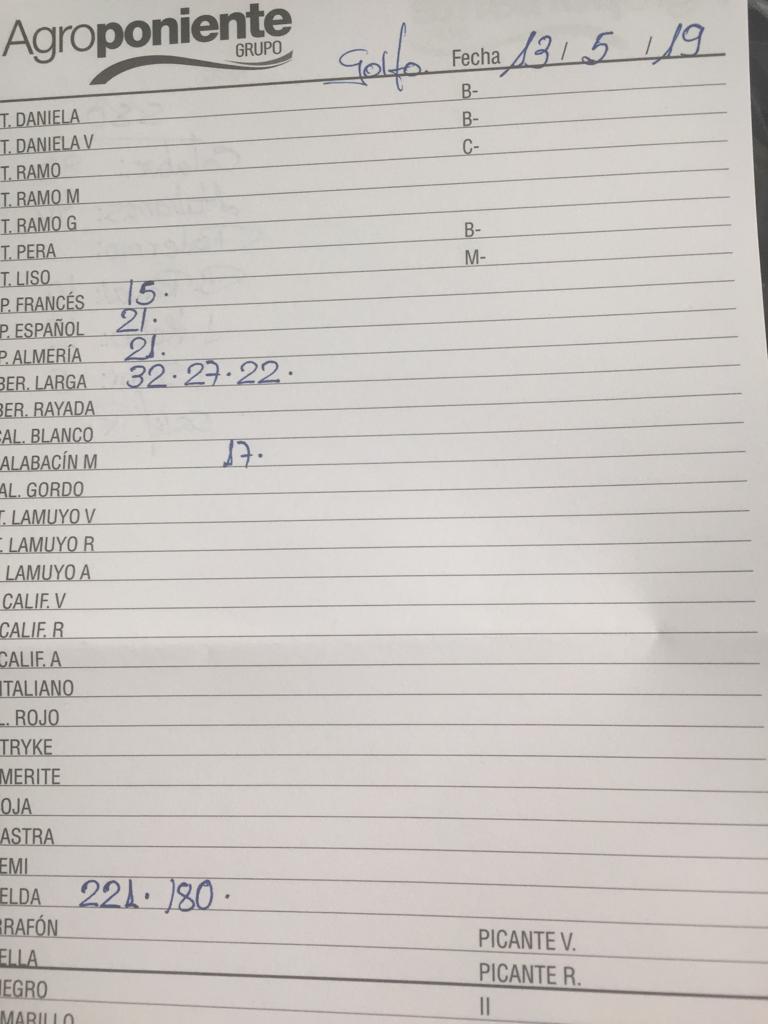 Agroponiente
GRUPO
Golfo. Fecha 13 / 5 / 19
B-
T. DANIELA B-
T. DANIELA V C-
T. RAMO
T. RAMO M
T. RAMO G B-
T. PERA M-
T. LISO
P. FRANCÉS 15.
P. ESPAÑOL 21.
P. ALMERÍA 21.
BER. LARGA 32. 27. 22.
BER. RAYADA
CAL. BLANCO
ALABACÍN M 17.
AL. GORDO
T. LAMUYO V
. LAMUYO R
LAMUYO A
CALIF. V
CALIF. R
CALIF. A
ITALIANO
L. ROJO
TRYKE
MERITE
OJA
ASTRA
EMI
ELDA 221. 180.
RRAFÓN PICANTE V.
ELLA PICANTE R.
NEGRO II
MARILLO